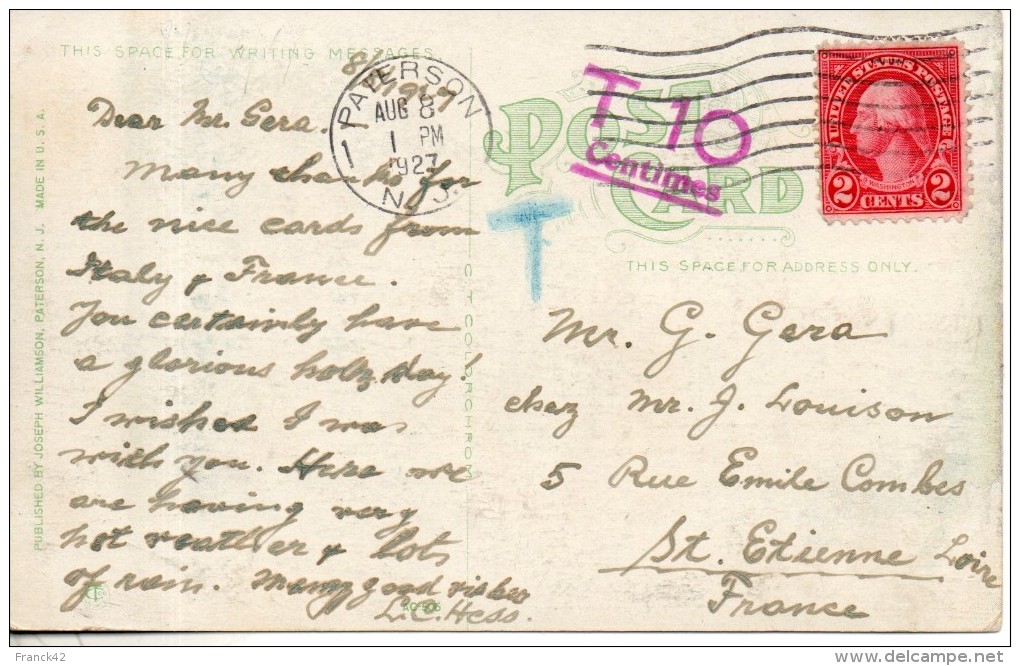 THIS SPACE FOR WRITING MESSAGES
8/8 1927
Dear Mr. Gera.
Many thanks for
the nice cards from
Italy & France.
You certainly have
a glorious holy day!
I wished I was
with you. Here we
are having very
hot weather & lots
of rain. Many good wishes
L.C. Hess.
PUBLISHED BY JOSEPH WILLIAMSON, PATERSON, N. J. MADE IN U. S. A.
PATERSON
AUG 8
1 PM
1927
N.J.
1
POST
CARD
T 10
Centimes
T
UNITED STATES POSTAGE
WASHINGTON
2 CENTS 2
THIS SPACE FOR ADDRESS ONLY.
C T COLORCHROM
Mr. G. Gera
chez Mr. J. Louison
5 Rue Emile Combes
St. Etienne Loire
France
Franck42
www.delcampe.net